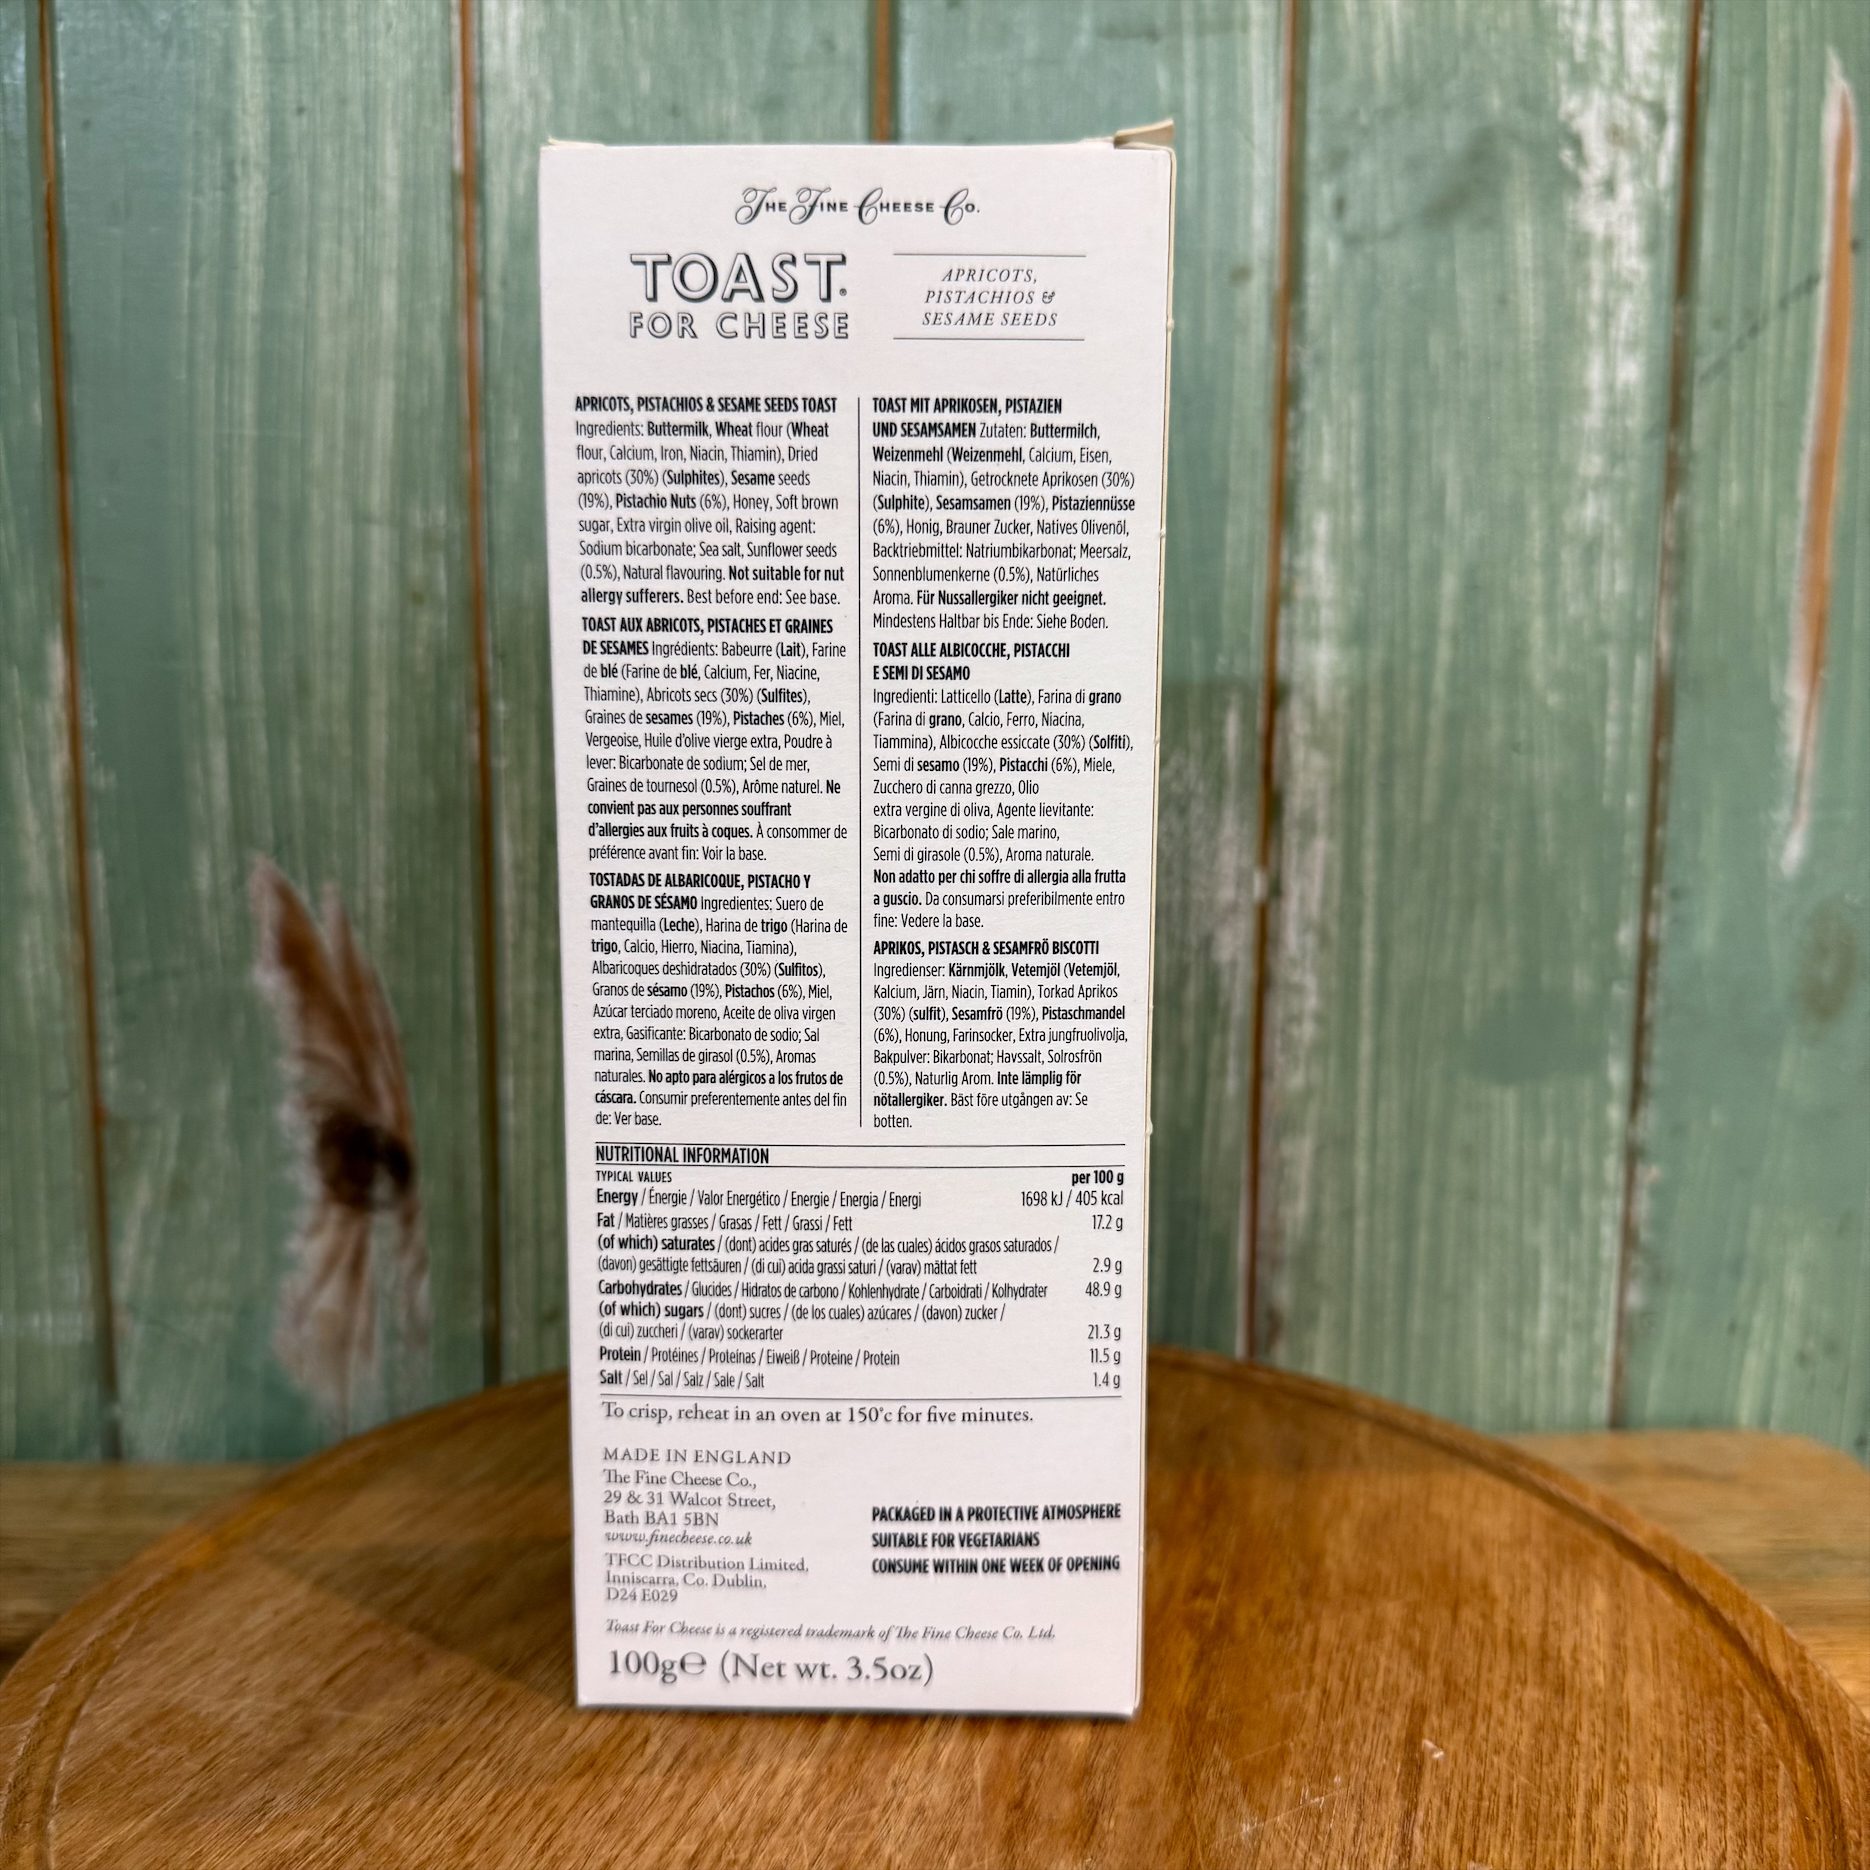 THE FINE CHEESE CO.
TOAST.
FOR CHEESE
APRICOTS,
PISTACHIOS &
SESAME SEEDS
APRICOTS, PISTACHIOS & SESAME SEEDS TOAST
Ingredients: Buttermilk, Wheat flour (Wheat
flour, Calcium, Iron, Niacin, Thiamin), Dried
apricots (30%) (Sulphites), Sesame seeds
(19%), Pistachio Nuts (6%), Honey, Soft brown
sugar, Extra virgin olive oil, Raising agent:
Sodium bicarbonate; Sea salt, Sunflower seeds
(0.5%), Natural flavouring. Not suitable for nut
allergy sufferers. Best before end: See base.
TOAST AUX ABRICOTS, PISTACHES ET GRAINES
DE SESAMES Ingrédients: Babeurre (Lait), Farine
de blé (Farine de blé, Calcium, Fer, Niacine,
Thiamine), Abricots secs (30%) (Sulfites),
Graines de sesames (19%), Pistaches (6%), Miel,
Vergeoise, Huile d'olive vierge extra, Poudre à
lever: Bicarbonate de sodium; Sel de mer,
Graines de tournesol (0.5%), Arôme naturel. Ne
convient pas aux personnes souffrant
d'allergies aux fruits à coques. À consommer de
préférence avant fin: Voir la base.
TOSTADAS DE ALBARICOQUE, PISTACHO Y
GRANOS DE SÉSAMO Ingredientes: Suero de
mantequilla (Leche), Harina de trigo (Harina de
trigo, Calcio, Hierro, Niacina, Tiamina),
Albaricoques deshidratados (30%) (Sulfitos),
Granos de sésamo (19%), Pistachos (6%), Miel,
Azúcar terciado moreno, Aceite de oliva virgen
extra, Gasificante: Bicarbonato de sodio; Sal
marina, Semillas de girasol (0.5%), Aromas
naturales. No apto para alérgicos a los frutos de
cáscara. Consumir preferentemente antes del fin
de: Ver base.
TOAST MIT APRIKOSEN, PISTAZIEN
UND SESAMSAMEN Zutaten: Buttermilch,
Weizenmehl (Weizenmehl, Calcium, Eisen,
Niacin, Thiamin), Getrocknete Aprikosen (30%)
(Sulphite), Sesamsamen (19%), Pistaziennüsse
(6%), Honig, Brauner Zucker, Natives Olivenöl,
Backtriebmittel: Natriumbikarbonat; Meersalz,
Sonnenblumenkerne (0.5%), Natürliches
Aroma. Für Nussallergiker nicht geeignet.
Mindestens Haltbar bis Ende: Siehe Boden.
TOAST ALLE ALBICOCCHE, PISTACCHI
E SEMI DI SESAMO
Ingredienti: Latticello (Latte), Farina di grano
(Farina di grano, Calcio, Ferro, Niacina,
Tiammina), Albicocche essiccate (30%) (Solfiti),
Semi di sesamo (19%), Pistacchi (6%), Miele,
Zucchero di canna grezzo, Olio
extra vergine di oliva, Agente lievitante:
Bicarbonato di sodio; Sale marino,
Semi di girasole (0.5%), Aroma naturale.
Non adatto per chi soffre di allergia alla frutta
a guscio. Da consumarsi preferibilmente entro
fine: Vedere la base.
APRIKOS, PISTASCH & SESAMFRÖ BISCOTTI
Ingredienser: Kärnmjölk, Vetemjöl (Vetemjöl,
Kalcium, Järn, Niacin, Tiamin), Torkad Aprikos
(30%) (sulfit), Sesamfrö (19%), Pistaschmandel
(6%), Honung, Farinsocker, Extra jungfruolivolja,
Bakpulver: Bikarbonat; Havssalt, Solrosfrön
(0.5%), Naturlig Arom. Inte lämplig för
nötallergiker. Bäst före utgången av: Se
botten.
NUTRITIONAL INFORMATION
TYPICAL VALUES per 100 g
Energy / Énergie / Valor Energético / Energie / Energia / Energi 1698 kJ / 405 kcal
Fat / Matières grasses / Grasas / Fett / Grassi / Fett 17.2 g
(of which) saturates / (dont) acides gras saturés / (de las cuales) ácidos grasos saturados /
(davon) gesättigte fettsäuren / (di cui) acida grassi saturi / (varav) mättat fett 2.9 g
Carbohydrates / Glucides / Hidratos de carbono / Kohlenhydrate / Carboidrati / Kolhydrater 48.9 g
(of which) sugars / (dont) sucres / (de los cuales) azúcares / (davon) zucker /
(di cui) zuccheri / (varav) sockerarter 21.3 g
Protein / Protéines / Proteínas / Eiweiß / Proteine / Protein 11.5 g
Salt / Sel / Sal / Salz / Sale / Salt 1.4 g
To crisp, reheat in an oven at 150°c for five minutes.
MADE IN ENGLAND
The Fine Cheese Co.,
29 & 31 Walcot Street,
Bath BA1 5BN
www.finecheese.co.uk
TFCC Distribution Limited,
Inniscarra, Co. Dublin,
D24 E029
PACKAGED IN A PROTECTIVE ATMOSPHERE
SUITABLE FOR VEGETARIANS
CONSUME WITHIN ONE WEEK OF OPENING
Toast For Cheese is a registered trademark of The Fine Cheese Co. Ltd.
100g℮ (Net wt. 3.5oz)